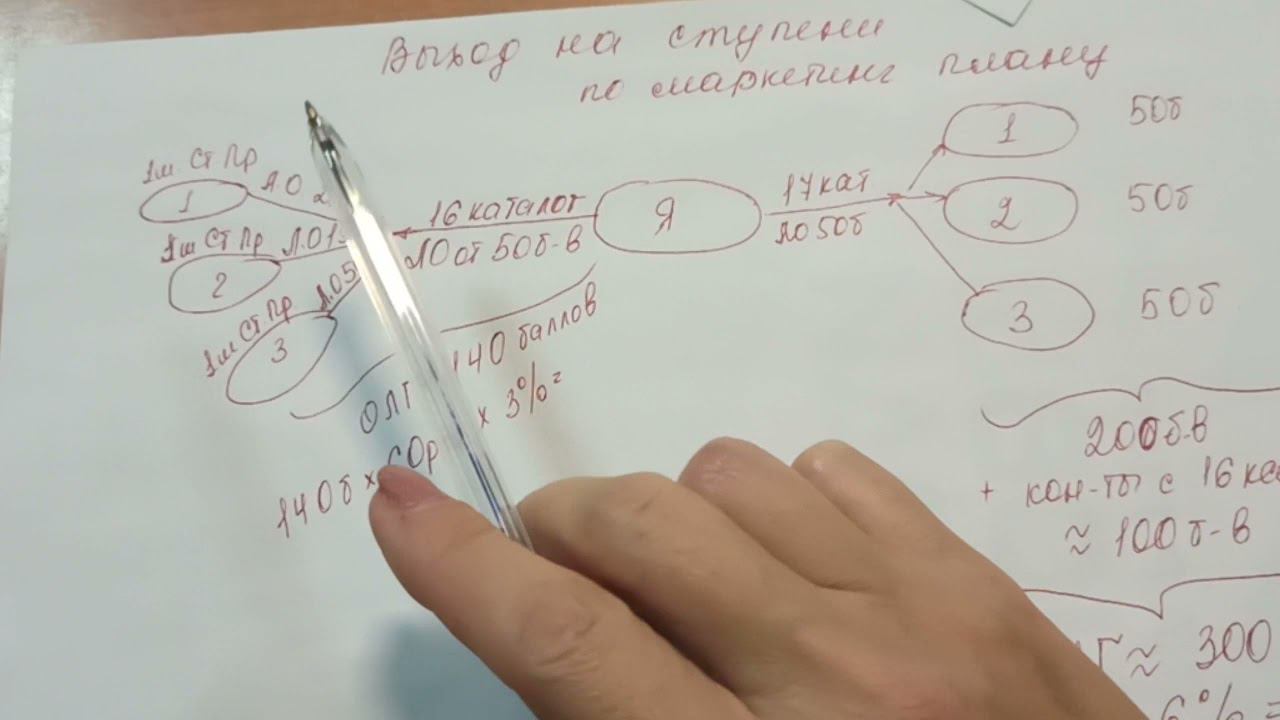 Выход на ступени
по маркетинг плану
1ш Ст Пр
1
Л.О
1ш Ст Пр
2
Л.О 1
1ш Ст Пр
3
Л.О 5
16 каталог
ЛО от 50 б-в
Я
17 кат
ЛО 50б
1
50б
2
50б
3
50б
ОЛГ
140 баллов
140б х 60р х 3% =
200б-в
+ кон-ты с 16
≈ 100 б-в
Г ≈ 300
6% =